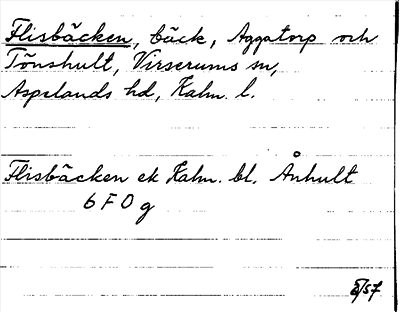 Flisbäcken, bäck, Aggatorp och
Tönshult, Virserums sn,
Aspelands hd, Kalm. l.
Flisbäcken ek Kalm. bl. Ånhult
6 F 0 g